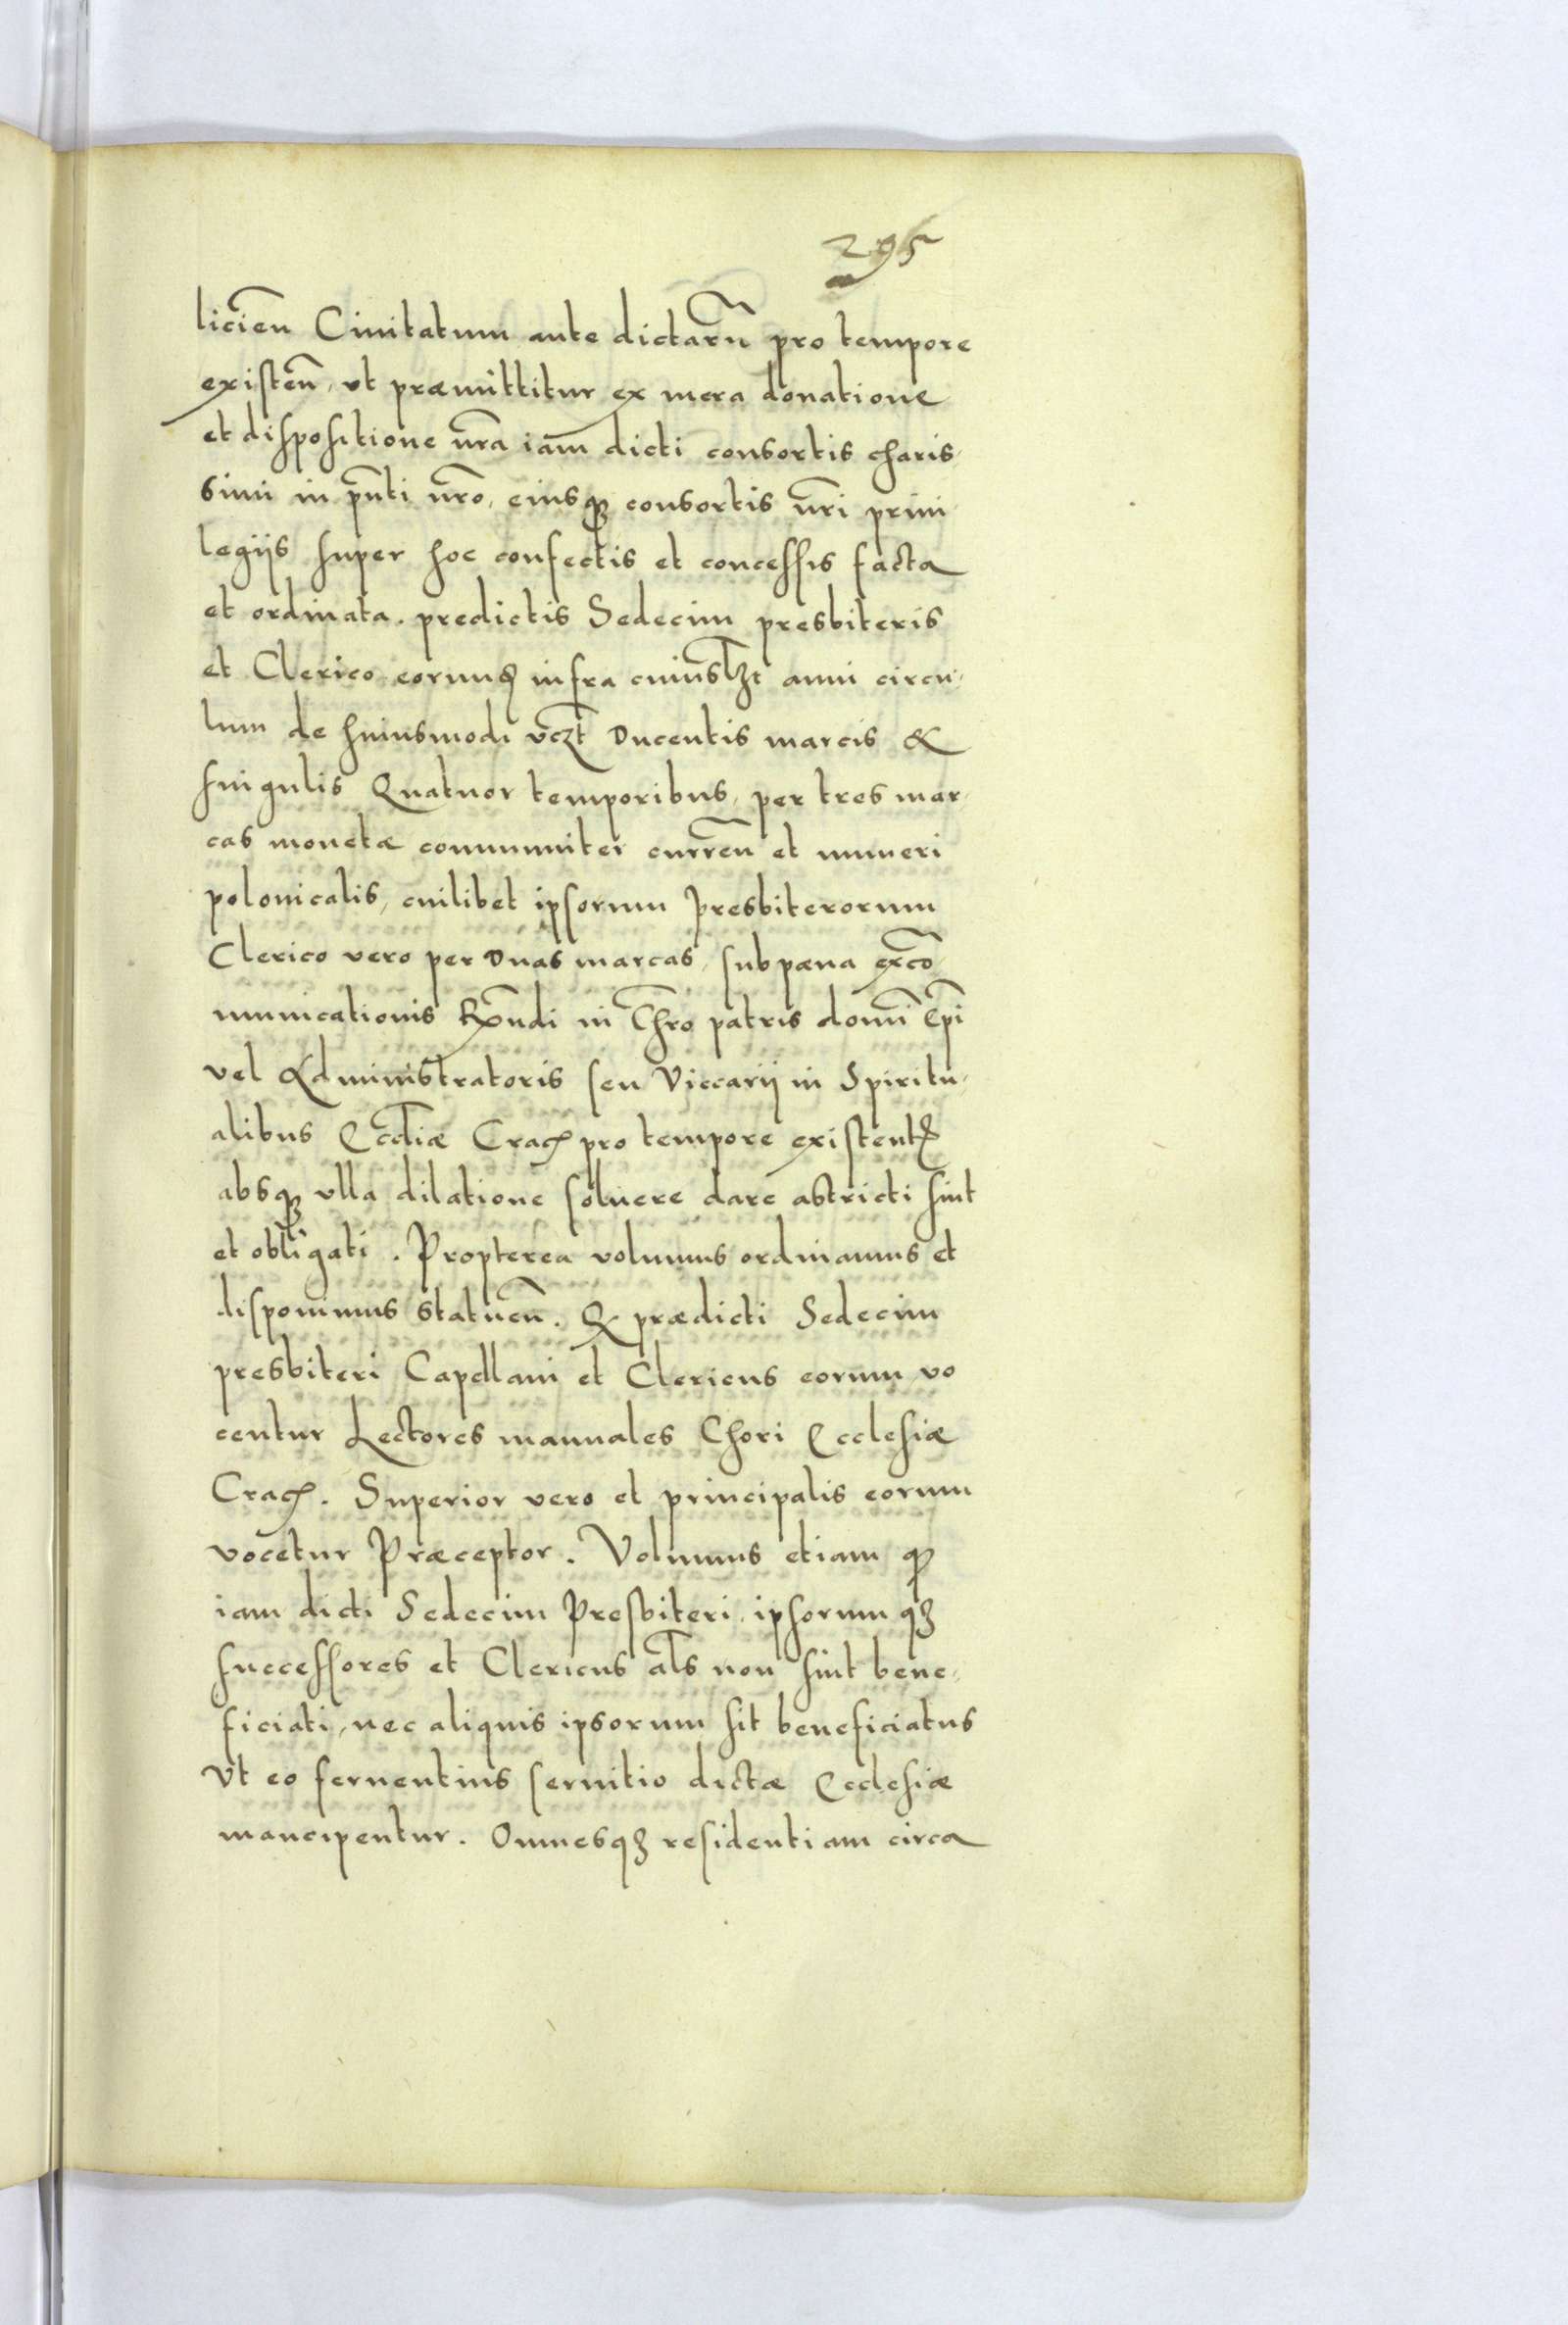 295
licień Ciuitatum ante dictarū pro tempore
existeñ, vt præmittitur ex mera donatione
et dispositione nr̃a iam dicti consortis charis-
simi in pñti nr̃o, eiusqꝫ consortis nr̃i priui
legijs super hoc confectis et concessis facta
et ordinata. predictis Sedecim presbiteris
et Clerico eorumqꝫ infra cuiuslꝫt anni circu-
lum de huiusmodi vczt Ducentis marcis &
singulis Quatuor temporibus, per tres mar-
cas monetæ communiter curreñ et numeri
polonicalis, cuilibet ipsorum Presbiterorum
Clerico vero per Duas marcas, sub pæna exco-
municationis Rx̃ndi in Chr̃o patris domi Ep̃i
vel Administratoris seu Viccarij in Spiritu-
alibus Eccl̃iæ Cracꝭ pro tempore existentꝭ
absqꝫ vlla dilatione soluere dare astricti sint
et obligati. Propterea volumus ordinamus et
disponimus statueñ. Q prædicti Sedecim
presbiteri Capellani et Clericus eorum vo
centur Lectores manuales Chori Ecclesiæ
Cracꝭ. Superior vero et principalis eorum
vocetur Præceptor. Volumus etiam qꝫ
iam dicti Sedecim Presbiteri, ipsorum qꝫ
successores et Clericus al̃s non sint bene-
ficiati, nec aliquis ipsorum sit beneficiatus
Vt eo feruentius seruitio dictæ Ecclesiæ
mancipentur. Omnesqꝫ residentiam circa